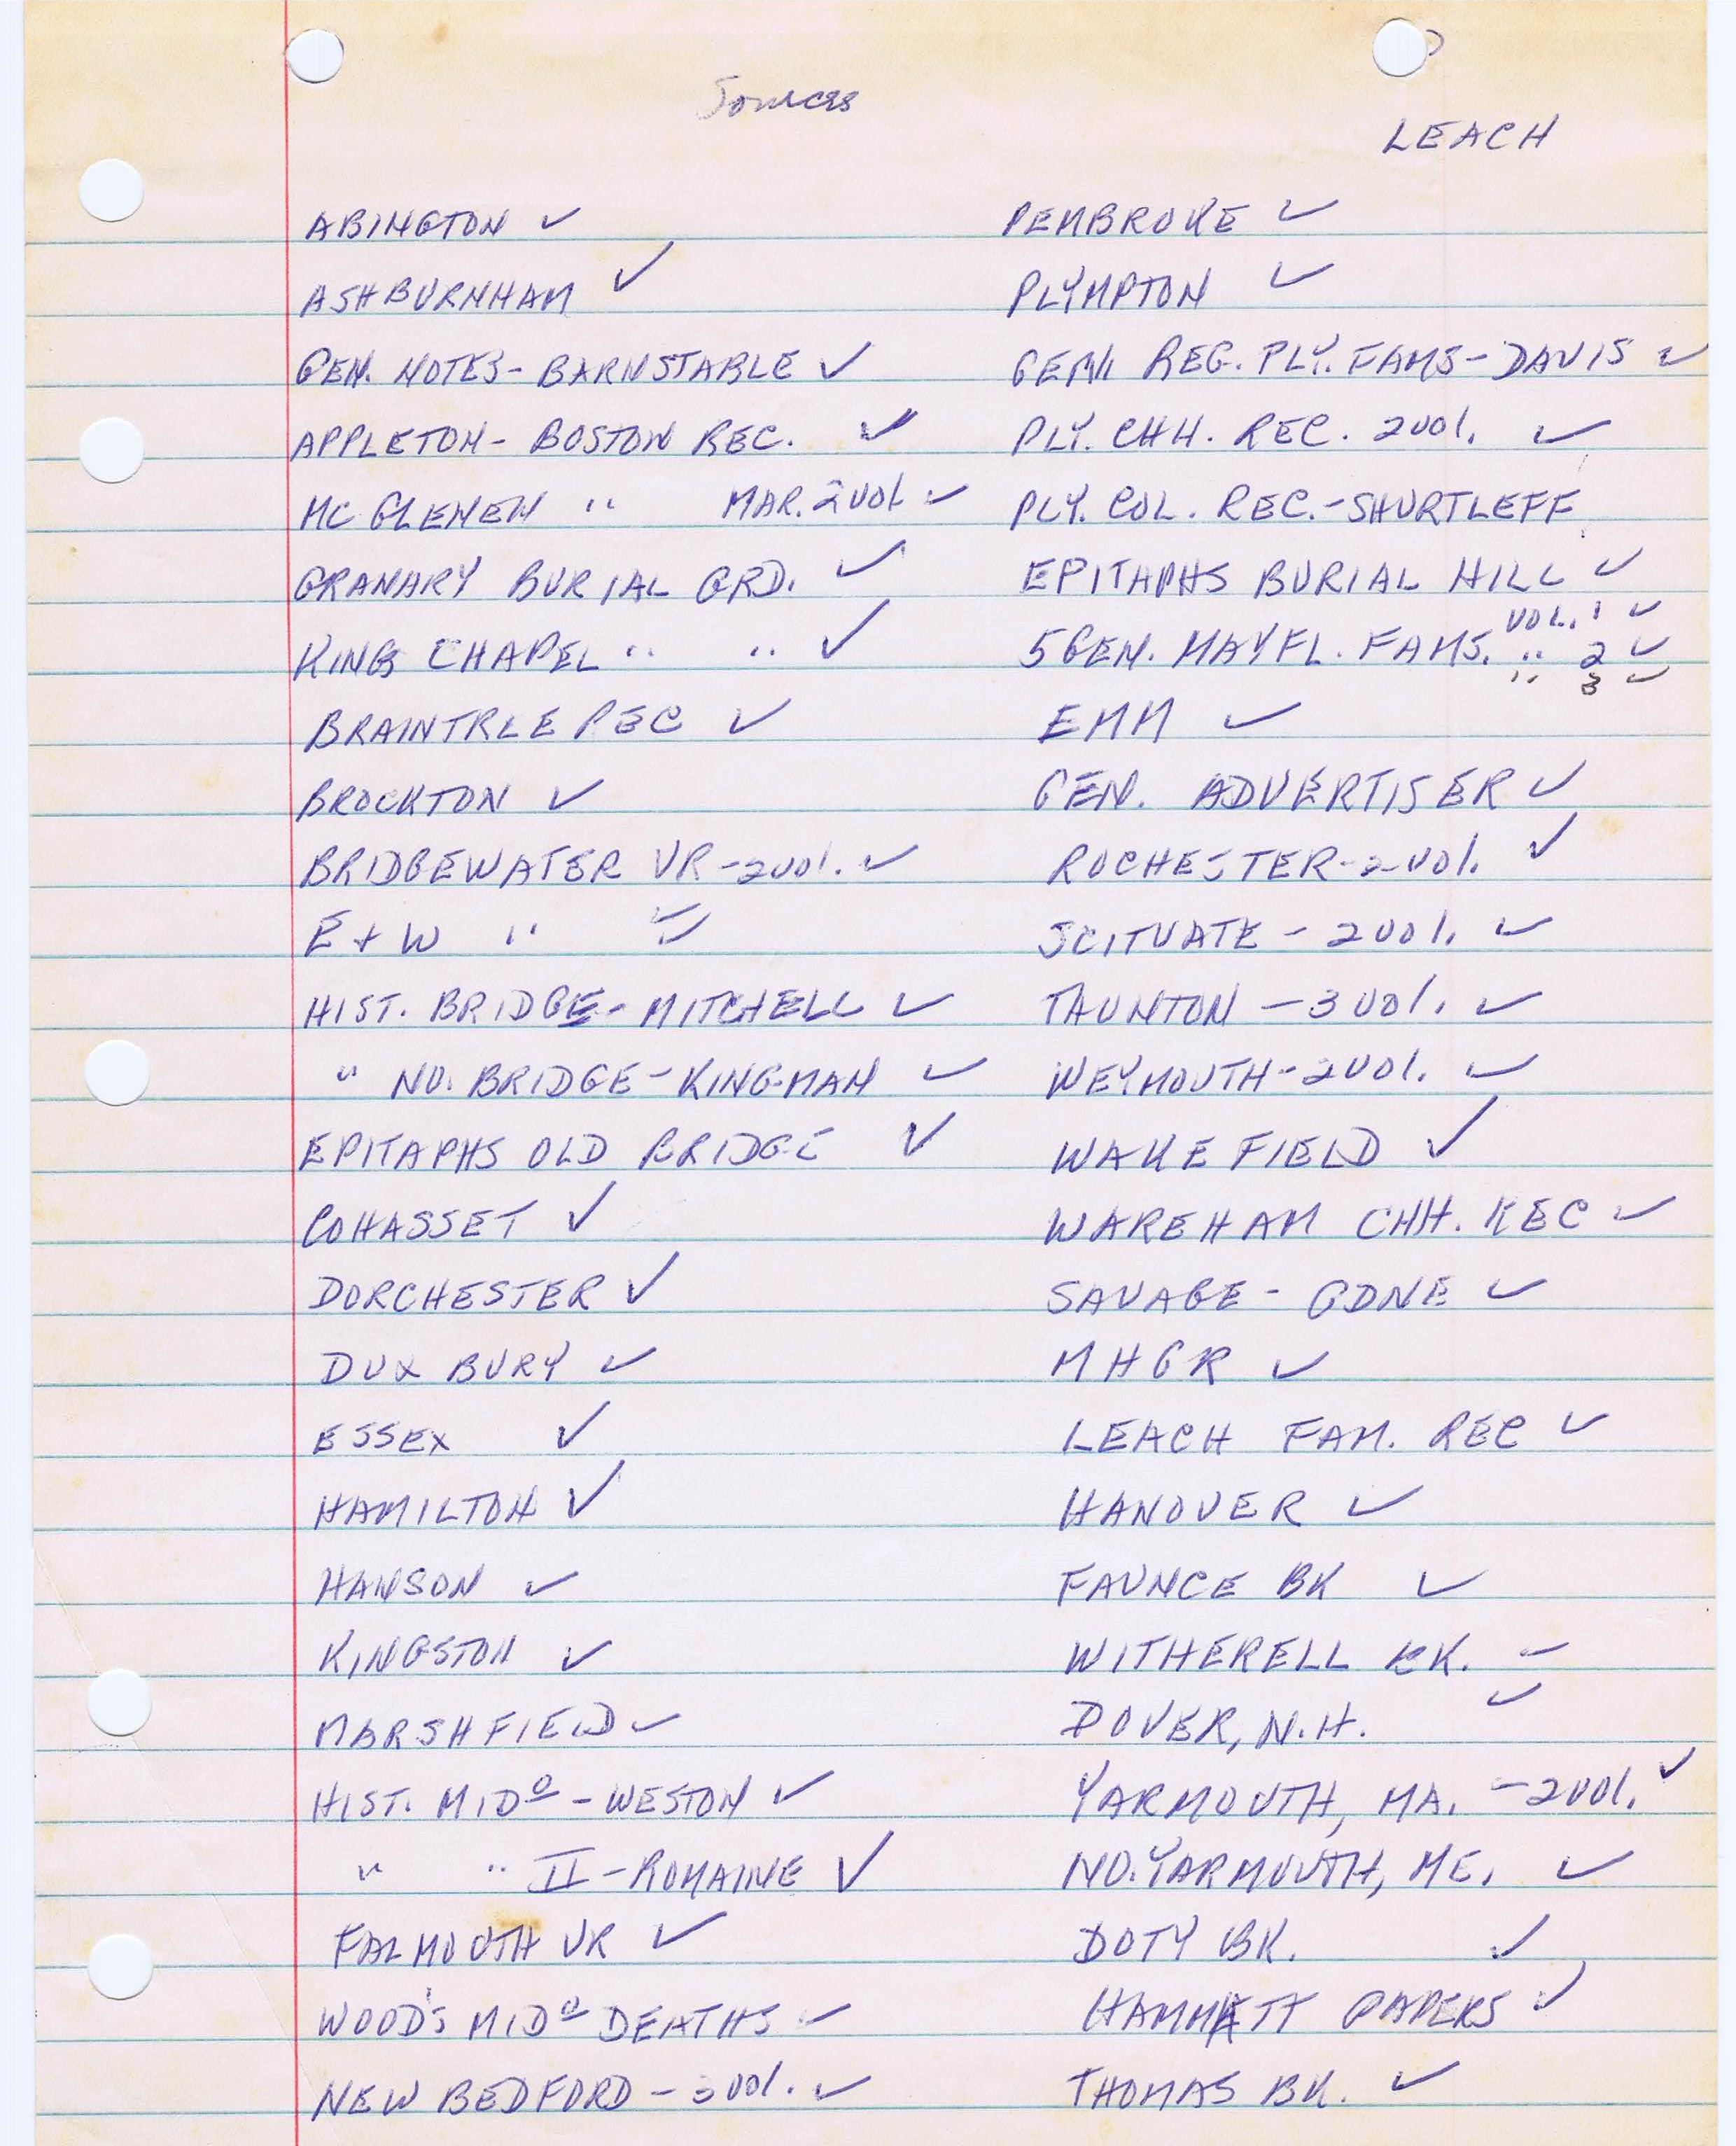 Sources
LEACH
ABINGTON ✓
ASHBURNHAM ✓
GEN. NOTES - BARNSTABLE ✓
APPLETON - BOSTON REC. ✓
MC GLENEN " MAR. 2 vol ✓
GRANARY BURIAL GRD. ✓
KING CHAPEL " " ✓
BRAINTREE REC ✓
BROCKTON ✓
BRIDGEWATER VR - 2 vol. ✓
E + W " " ✓
HIST. BRIDGE - MITCHELL ✓
" NO. BRIDGE - KINGMAN ✓
EPITAPHS OLD BRIDGE ✓
COHASSET ✓
DORCHESTER ✓
DUXBURY ✓
ESSEX ✓
HAMILTON ✓
HANSON ✓
KINGSTON ✓
MARSHFIELD ✓
HIST. MIDº - WESTON ✓
" " II - ROMAINE ✓
FALMOUTH VR ✓
WOOD'S MIDº DEATHS ✓
NEW BEDFORD - 3 vol. ✓
PEMBROKE ✓
PLYMPTON ✓
GEN. REG. PLY. FAMS - DAVIS ✓
PLY. CHH. REC. 2 vol. ✓
PLY. COL. REC. - SHURTLEFF
EPITAPHS BURIAL HILL ✓
5 GEN. MAYFL. FAMS. VOL. 1 ✓
" 2 ✓
" 3 ✓
EMM ✓
GEN. ADVERTISER ✓
ROCHESTER - 2 vol. ✓
SCITUATE - 2 vol. ✓
TAUNTON - 3 vol. ✓
WEYMOUTH - 2 vol. ✓
WAKEFIELD ✓
WAREHAM CHH. REC ✓
SAVAGE - GDNE ✓
MHGR ✓
LEACH FAM. REC ✓
HANOVER ✓
FAUNCE BK ✓
WITHERELL BK. ✓
DOVER, N.H. ✓
YARMOUTH, MA. - 2 vol. ✓
NO. YARMOUTH, ME. ✓
DOTY BK. ✓
HAMMATT PAPERS ✓
THOMAS BK. ✓